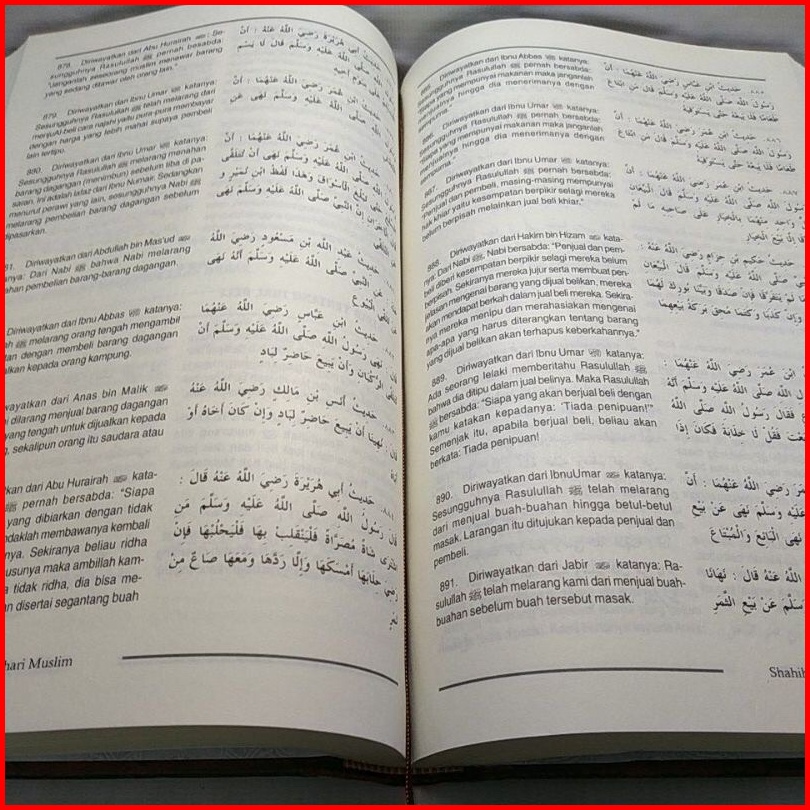 878. Diriwayatkan dari Abu Hurairah ﷺ : Se-
sungguhnya Rasulullah ﷺ pernah bersabda:
"Janganlah seseorang muslim menawar barang
yang sedang ditawar oleh orang lain."
حديث أبي هُرَيْرَةَ رَضِيَ اللَّهُ عَنْهُ : أَنَّ
صَلَّى اللَّهُ عَلَيْهِ وَسَلَّمَ قَالَ لَا يَسُمِ
879. Diriwayatkan dari Ibnu Umar katanya:
Sesungguhnya Rasulullah ﷺ telah melarang dari
dengan harga yang lebih mahal supaya pembeli
lain tertipu.
حديث ابْنِ عُمَرَ رَضِيَ اللَّهُ عَنْهُمَا : أَنَّ
صَلَّى اللَّهُ عَلَيْهِ وَسَلَّمَ نَهَى عَنِ
880. Diriwayatkan dari Ibnu Umar katanya:
Sesungguhnya Rasulullah ﷺ melarang menahan
barang dagangan (menimbun) sebelum tiba di pa-
saran. Ini adalah lafaz dari Ibnu Numair. Sedangkan
menurut perawi yang lain, sesungguhnya Nabi ﷺ
melarang pembelian barang dagangan sebelum
dipasarkan.
حديث ابْنِ عُمَرَ رَضِيَ اللَّهُ عَنْهُمَا : أَنَّ
صَلَّى اللَّهُ عَلَيْهِ وَسَلَّمَ نَهَى أَنْ تُتَلَقَّى
تَبْلُغَ الْأَسْوَاقَ وَهَذَا لَفْظُ ابْنِ نُمَيْرٍ و
إِنَّ النَّبِيَّ صَلَّى اللَّهُ عَلَيْهِ وَسَلَّمَ نَهَى
التَّلَقِّي
81. Diriwayatkan dari Abdullah bin Mas'ud
anya: Dari Nabi ﷺ bahwa Nabi melarang
ahan pembelian barang-barang dagangan.
حديث عَبْدِ اللَّهِ بْنِ مَسْعُودٍ رَضِيَ اللَّهُ
عَنِ النَّبِيِّ صَلَّى اللَّهُ عَلَيْهِ وَسَلَّمَ أَنَّهُ نَهَى
الْبُيُوعِ
Diriwayatkan dari Ibnu Abbas katanya:
ah ﷺ melarang orang tengah mengambil
tan dengan membeli barang dagangan
alkan kepada orang kampung.
حديث ابْنِ عَبَّاسٍ رَضِيَ اللَّهُ عَنْهُمَا
قَالَ نَهَى رَسُولُ اللَّهِ صَلَّى اللَّهُ عَلَيْهِ وَسَلَّمَ أَنْ
الرُّكْبَانُ وَأَنْ يَبِيعَ حَاضِرٌ لِبَادٍ
wayatkan dari Anas bin Malik
i dilarang menjual barang dagangan
yang tengah untuk dijualkan kepada
, sekalipun orang itu saudara atau
حديث أَنَسِ بْنِ مَالِكٍ رَضِيَ اللَّهُ عَنْهُ
قَالَ : نُهِينَا أَنْ يَبِيعَ حَاضِرٌ لِبَادٍ وَإِنْ كَانَ أَخَاهُ أَوْ
kan dari Abu Hurairah kata-
ﷺ pernah bersabda: "Siapa
yang dibiarkan dengan tidak
ndaklah membawanya kembali
nya. Sekiranya beliau ridha
susunya maka ambillah kam-
a tidak ridha, dia bisa me-
n disertai segantang buah
حديث أَبِي هُرَيْرَةَ رَضِيَ اللَّهُ عَنْهُ قَالَ :
قَالَ رَسُولُ اللَّهِ صَلَّى اللَّهُ عَلَيْهِ وَسَلَّمَ مَنِ
اشْتَرَى شَاةً مُصَرَّاةً فَلْيَنْقَلِبْ بِهَا فَلْيَحْلُبْهَا فَإِنْ
رَضِيَ حِلَابَهَا أَمْسَكَهَا وَإِلَّا رَدَّهَا وَمَعَهَا صَاعٌ مِنْ
hari Muslim
885. Diriwayatkan dari Ibnu Abbas katanya:
Sesungguhnya Rasulullah ﷺ pernah bersabda:
"Siapa yang mempunyai makanan maka janganlah
menjualnya hingga dia menerimanya dengan
حديث ابْنِ عَبَّاسٍ رَضِيَ اللَّهُ عَنْهُمَا : أَنَّ
رَسُولَ اللَّهِ صَلَّى اللَّهُ عَلَيْهِ وَسَلَّمَ قَالَ مَنِ ابْتَاعَ
طَعَامًا فَلَا يَبِعْهُ حَتَّى يَسْتَوْفِيَهُ
886. Diriwayatkan dari Ibnu Umar katanya:
Sesungguhnya Rasulullah ﷺ pernah bersabda:
"Siapa yang mempunyai makanan maka janganlah
menjualnya hingga dia menerimanya dengan
٨٨٦ حديث ابْنِ عُمَرَ رَضِيَ اللَّهُ عَنْهُمَا : أَنَّ
رَسُولَ اللَّهِ صَلَّى اللَّهُ عَلَيْهِ وَسَلَّمَ قَالَ مَنِ ابْتَاعَ
طَعَامًا فَلَا يَبِعْهُ حَتَّى يَسْتَوْفِيَهُ
887. Diriwayatkan dari Ibnu Umar katanya:
Sesungguhnya Rasulullah ﷺ pernah bersabda:
"Penjual dan pembeli, masing-masing mempunyai
hak khiar yaitu kesempatan berpikir selagi mereka
belum berpisah melainkan jual beli khiar."
٨٨٧ حديث ابْنِ عُمَرَ رَضِيَ اللَّهُ عَنْهُمَا : أَنَّ
اللَّهِ صَلَّى اللَّهُ عَلَيْهِ وَسَلَّمَ قَالَ الْبَيِّعَانِ
وَاحِدٍ مِنْهُمَا بِالْخِيَارِ عَلَى صَاحِبِهِ مَا لَمْ
إِلَّا بَيْعَ الْخِيَارِ
888. Diriwayatkan dari Hakim bin Hizam kata-
nya: Dari Nabi ﷺ, Nabi bersabda: "Penjual dan pem-
beli diberi kesempatan berpikir selagi mereka belum
berpisah. Sekiranya mereka jujur serta membuat pen-
jelasan mengenai barang yang dijual belikan, mereka
akan mendapat berkah dalam jual beli mereka. Sekira-
nya mereka menipu dan merahasiakan mengenai
apa-apa yang harus diterangkan tentang barang
yang dijual belikan akan terhapus keberkahannya."
حديث حَكِيمِ بْنِ حِزَامٍ رَضِيَ اللَّهُ عَنْهُ :
صَلَّى اللَّهُ عَلَيْهِ وَسَلَّمَ قَالَ الْبَيِّعَانِ
لَمْ يَتَفَرَّقَا فَإِنْ صَدَقَا وَبَيَّنَا بُورِكَ لَهُمَا
وَإِنْ كَذَبَا وَكَتَمَا مُحِقَ بَرَكَةُ بَيْعِهِمَا
889. Diriwayatkan dari Ibnu Umar katanya:
Ada seorang lelaki memberitahu Rasulullah ﷺ
bahwa dia ditipu dalam jual belinya. Maka Rasulullah
ﷺ bersabda: "Siapa yang akan berjual beli dengan
kamu katakan kepadanya: 'Tiada penipuan!'"
Semenjak itu, apabila berjual beli, beliau akan
berkata: Tiada penipuan!
ابْنِ عُمَرَ رَضِيَ اللَّهُ عَنْهُمَا :
اللَّهِ صَلَّى اللَّهُ عَلَيْهِ وَسَلَّمَ أَنَّهُ
فَقَالَ رَسُولُ اللَّهِ صَلَّى اللَّهُ
فَقُلْ لَا خِلَابَةَ فَكَانَ إِذَا
890. Diriwayatkan dari IbnuUmar katanya:
Sesungguhnya Rasulullah ﷺ telah melarang
dari menjual buah-buahan hingga betul-betul
masak. Larangan itu ditujukan kepada penjual dan
pembeli.
عُمَرَ رَضِيَ اللَّهُ عَنْهُمَا : أَنَّ
عَلَيْهِ وَسَلَّمَ نَهَى عَنْ بَيْعِ
نَهَى الْبَائِعَ وَالْمُبْتَاعَ
891. Diriwayatkan dari Jabir katanya: Ra-
sulullah ﷺ telah melarang kami dari menjual buah-
buahan sebelum buah tersebut masak.
اللَّهُ عَنْهُ قَالَ : نَهَانَا
وَسَلَّمَ عَنْ بَيْعِ الثَّمَرِ
Shahih